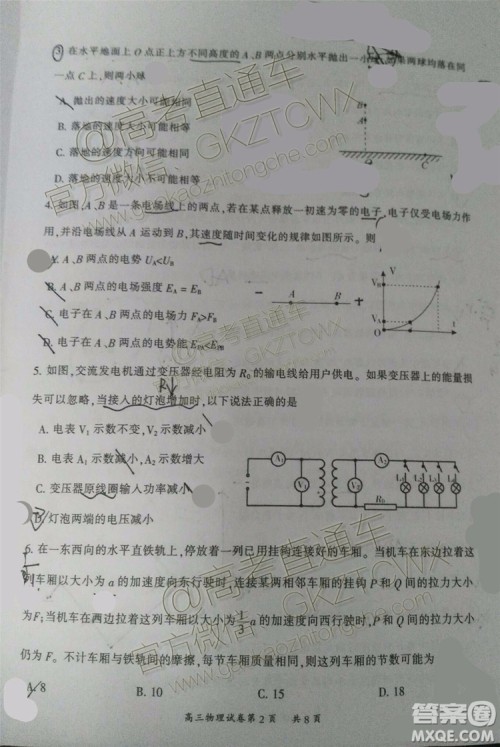 3. 在水平地面上 O 点正上方不同高度的 A、B 两点分别水平抛出一小球,如果两球均落在同
一点 C 上,则两小球
A. 抛出的速度大小可能相同
B. 落地的速度大小可能相等
C. 落地的速度方向可能相同
D. 落地的速度大小不可能相等
B
A
O
C
4. 如图,A、B 是一条电场线上的两点,若在某点释放一初速为零的电子,电子仅受电场力作
用,并沿电场线从 A 运动到 B,其速度随时间变化的规律如图所示。则
A. A、B 两点的电势 UA<UB
B. A、B 两点的电场强度 EA=EB
C. 电子在 A、B 两点的电场力 FA>FB
D. 电子在 A、B 两点的电势能 EPA<EPB
− A B +
V
VB
VA
O t
5. 如图,交流发电机通过变压器经电阻为 R0 的输电线给用户供电。如果变压器上的能量损
失可以忽略,当接入的灯泡增加时,以下说法正确的是
R↓
A. 电表 V1 示数不变,V2 示数减小
B. 电表 A1 示数减小,A2 示数减小
C. 变压器原线圈输入功率减小
D. 灯泡两端的电压减小
A1 A2
V1 V2
R0
L1 L2 L3 L4
6. 在一东西向的水平直铁轨上,停放着一列已用挂钩连接好的车厢。当机车在东边拉着这
列车厢以大小为 a 的加速度向东行驶时,连接某两相邻车厢的挂钩 P 和 Q 间的拉力大小
为F;当机车在西边拉着这列车厢以大小为 1/3 a 的加速度向西行驶时,P 和 Q 间的拉力大小
仍为 F。不计车厢与铁轨间的摩擦,每节车厢质量相同,则这列车厢的节数可能为
A. 8 B. 10 C. 15 D. 18
高三物理试卷第2页 共8页
@高考直通车
官方微信:GKZTCWX
gaokaozhitongche.com
@高考直通车
官方微信:GKZTCWX
答案圈